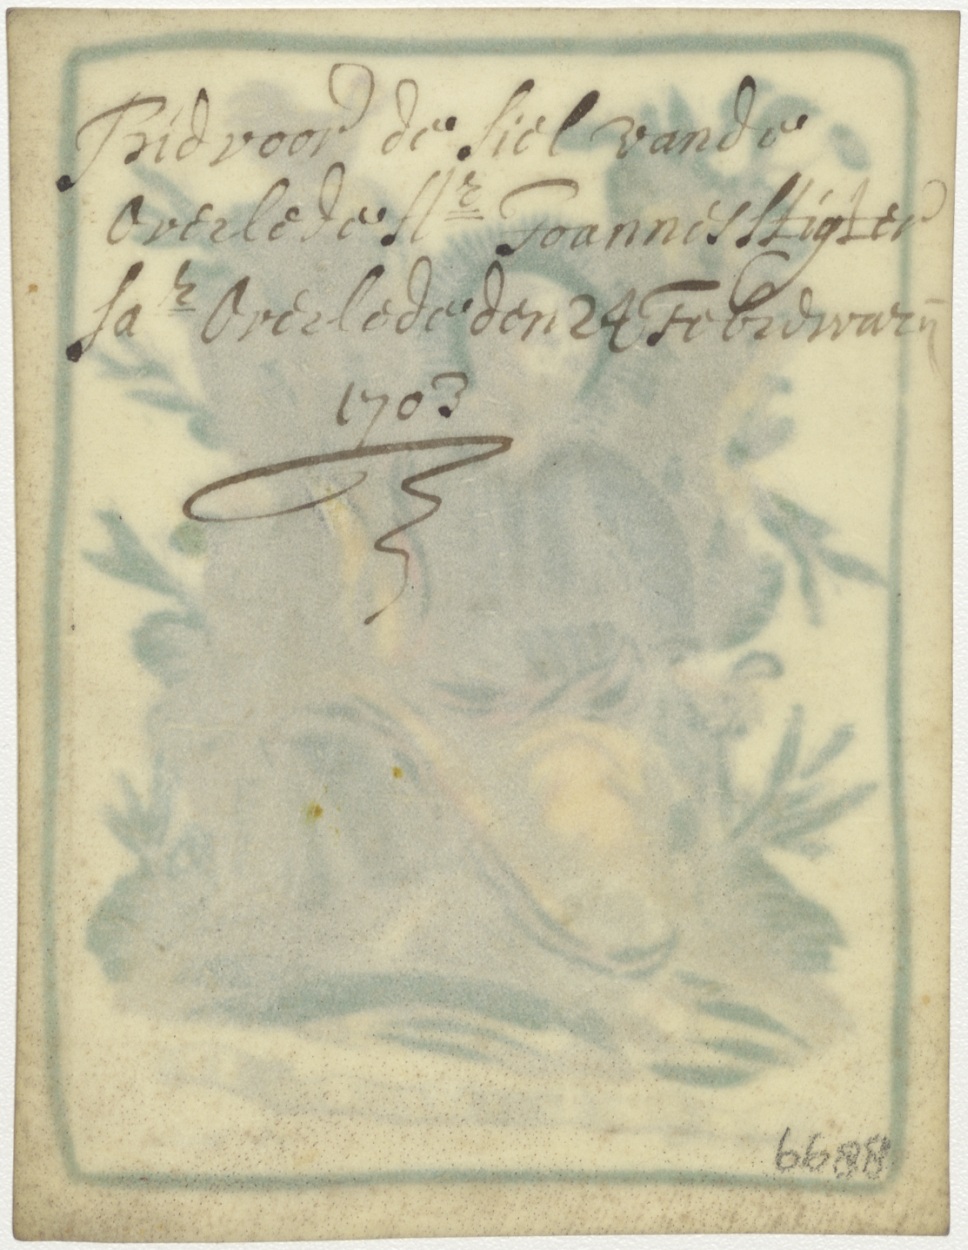 Bid voor de siel vande
Overlede Sr Joannes Stigter
Sar Overlede den 24 Februwarij
1703
6688